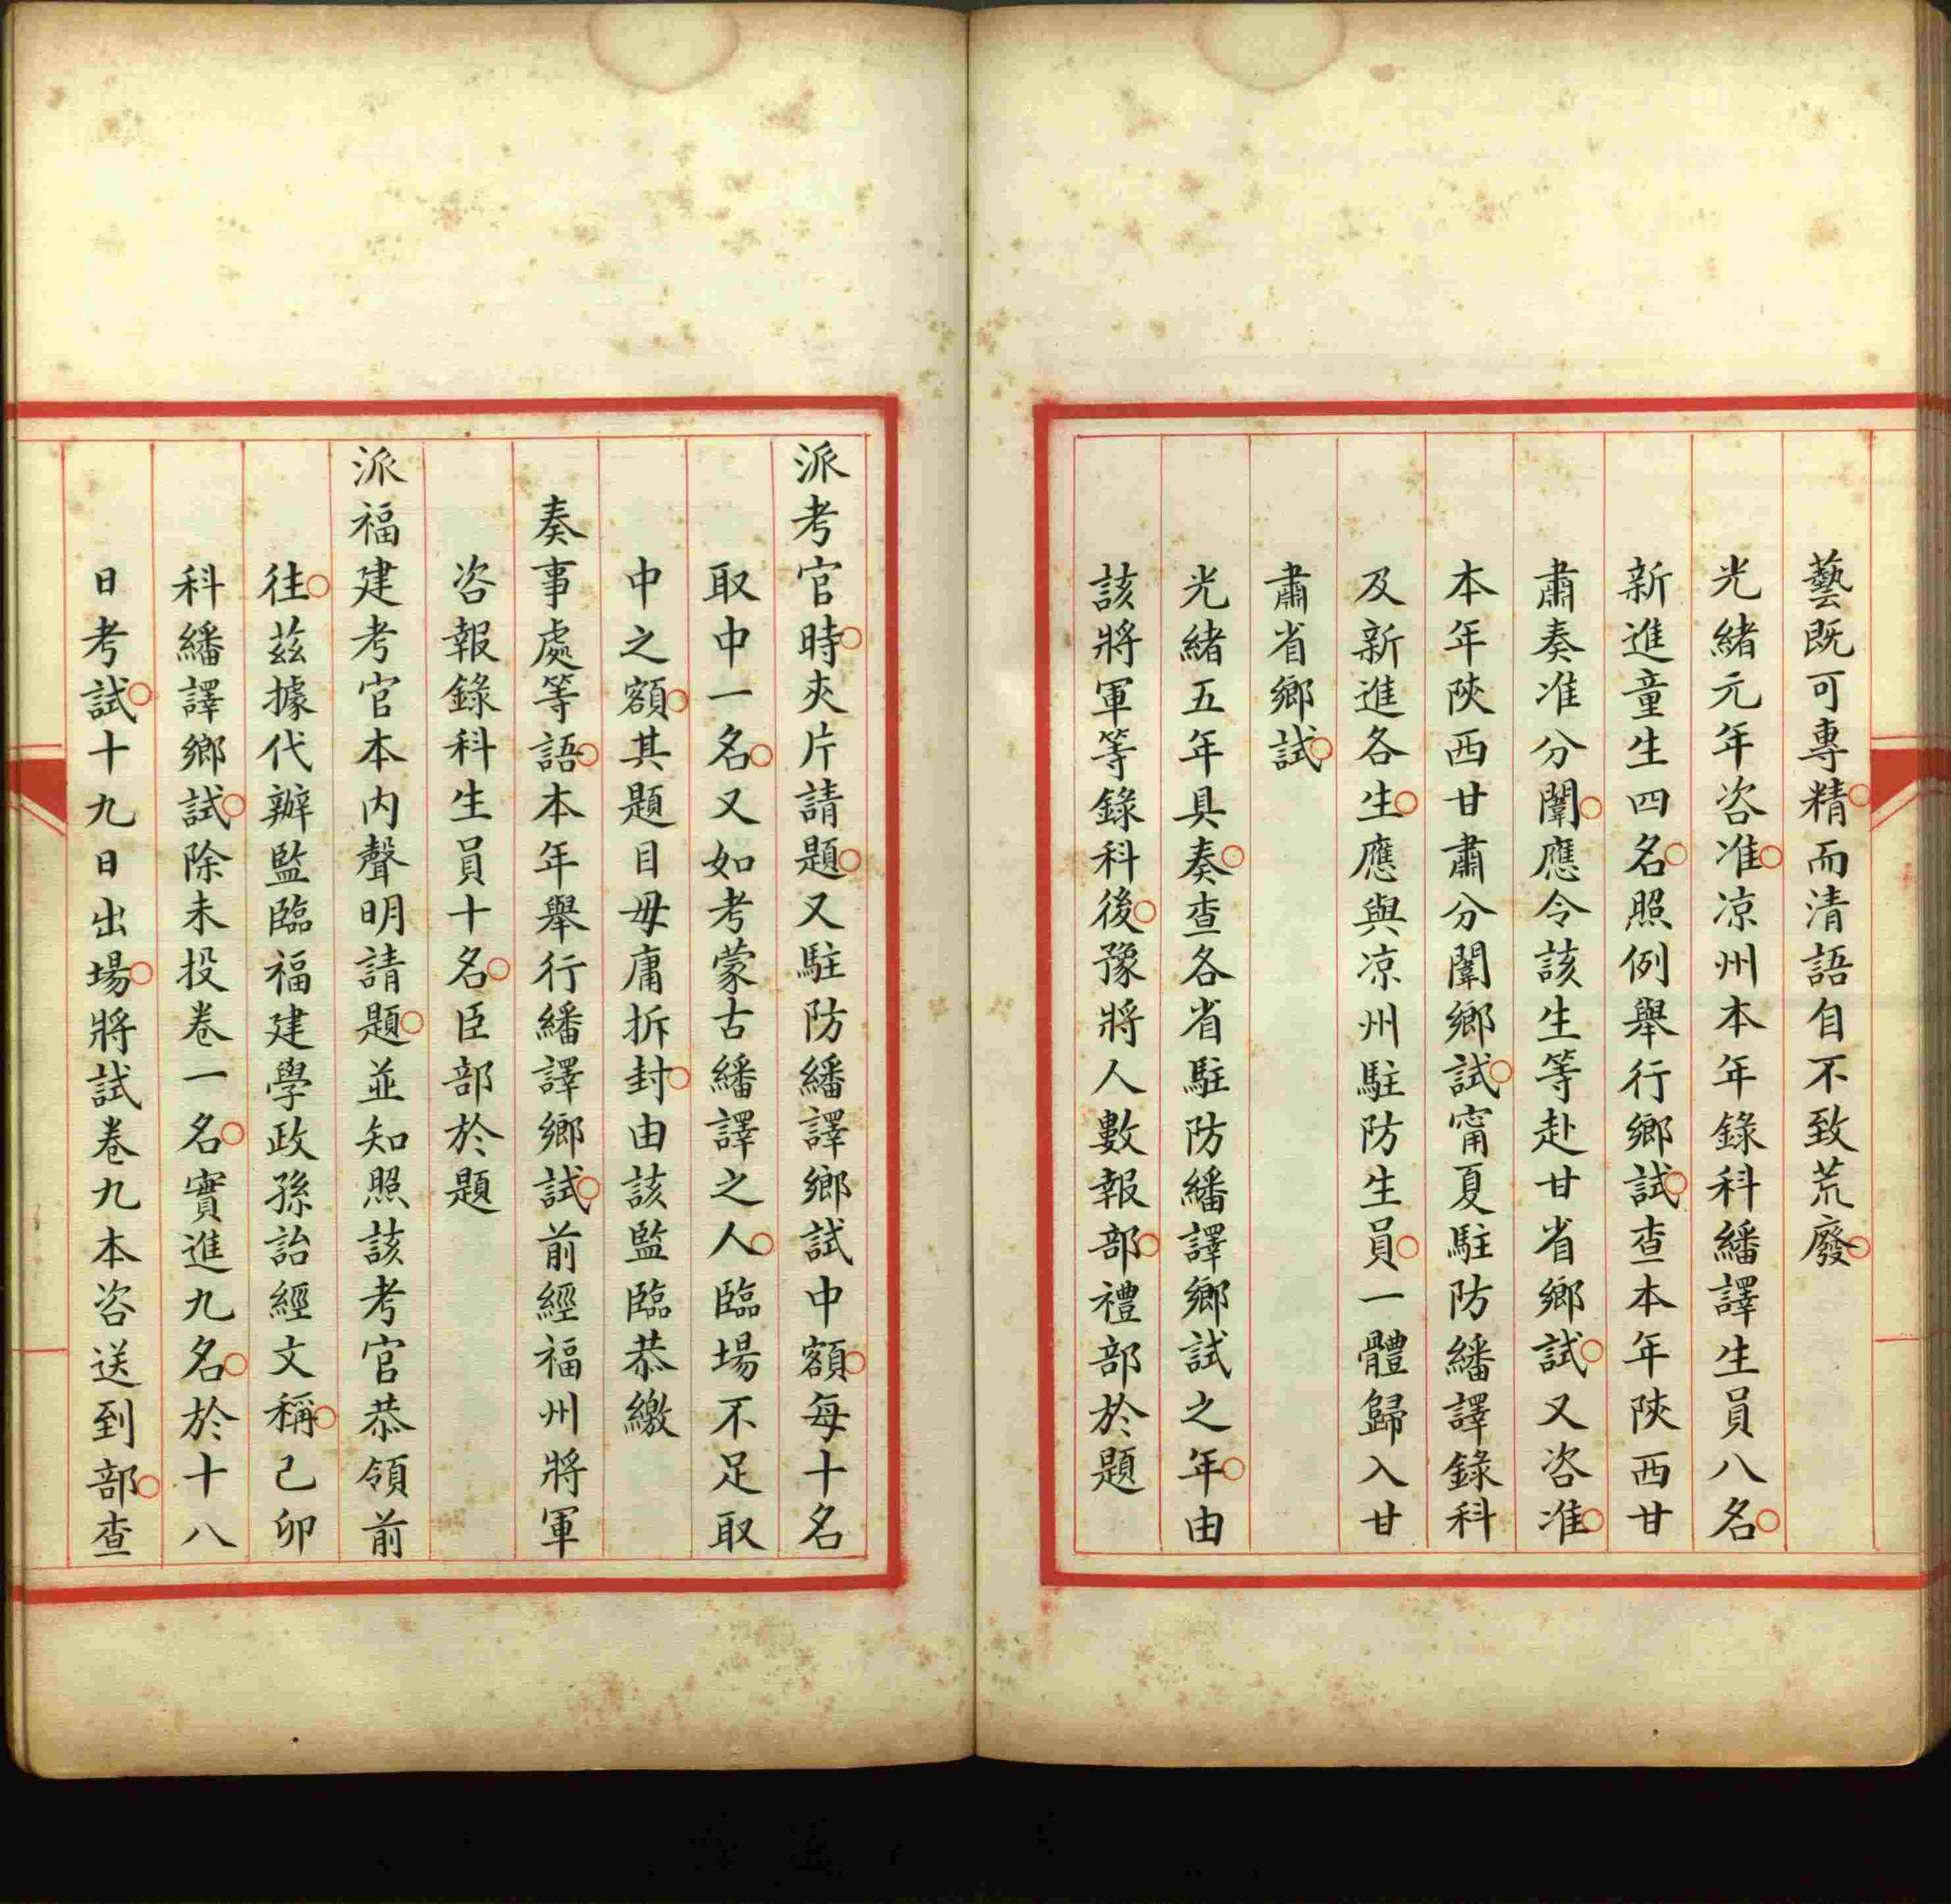 藝既可專精而清語自不致荒廢
光緒元年咨准凉州本年錄科繙譯生員八名
新進童生四名照例舉行鄉試查本年陝西甘
肅奏准分闈應令該生等赴甘省鄉試又咨准
本年陝西甘肅分闈鄉試甯夏駐防繙譯錄科
及新進各生應與凉州駐防生員一體歸入甘
肅省鄉試
光緒五年具奏查各省駐防繙譯鄉試之年由
該將軍等錄科後豫將人數報部禮部於題
派考官時夾片請題又駐防繙譯鄉試中額每十名
取中一名又如考蒙古繙譯之人臨場不足取
中之額其題目毋庸拆封由該監臨恭繳
奏事處等語本年舉行繙譯鄉試前經福州將軍
咨報錄科生員十名臣部於題
派福建考官本内聲明請題並知照該考官恭領前
往茲據代辦監臨福建學政孫詒經文稱己卯
科繙譯鄉試除未投卷一名實進九名於十八
日考試十九日出場將試卷九本咨送到部查